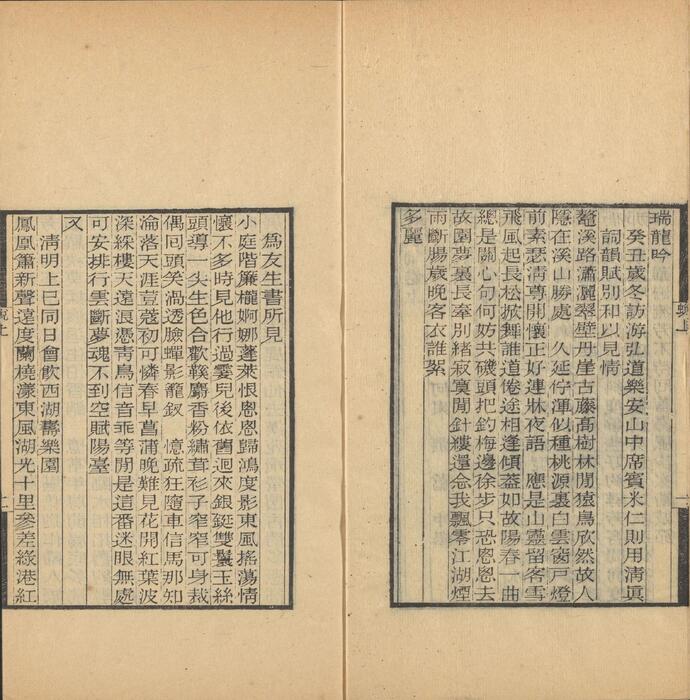 瑞龍吟
癸丑歲冬訪游弘道樂安山中席賓米仁則用淸眞
詞韻賦別和以見情
鼇溪路瀟灑翠壁丹崖古藤高樹林閒猿鳥欣然故人
隱在溪山勝處 久延佇渾似種桃源裏白雲窗戶燈
前素瑟淸尊開懷正好連牀夜語 應是山靈留客雪
飛風起長松掀舞誰道倦途相逢傾蓋如故陽春一曲
總是關心句何妨共磯頭把釣梅邊徐步只恐悤悤去
故園夢裏長牽別緒寂寞閒針縷還念我飄零江湖煙
雨斷腸歲晚客衣誰絮
多麗
爲友生書所見
小庭階簾櫳婀娜蓬萊恨悤悤歸鴻度影東風搖蕩情
懷不多時見他行過霎兒後依舊迴來銀鋌雙鬟玉絲
頭導一尖生色合歡鞵麝香粉繡茸衫子窄窄可身裁
偶囘頭笑渦透臉蟬影籠釵 憶疏狂隨車信馬那知
淪落天涯荳蔻初可憐春早菖蒲晚難見花開紅葉波
深綵樓天遠浪憑靑鳥信音乖等閒是這番迷眼無處
可安排行雲斷夢魂不到空賦陽臺
又
淸明上巳同日會飮西湖壽樂園
鳳凰簫新聲遠度蘭橈漾東風湖光十里參差綠港紅